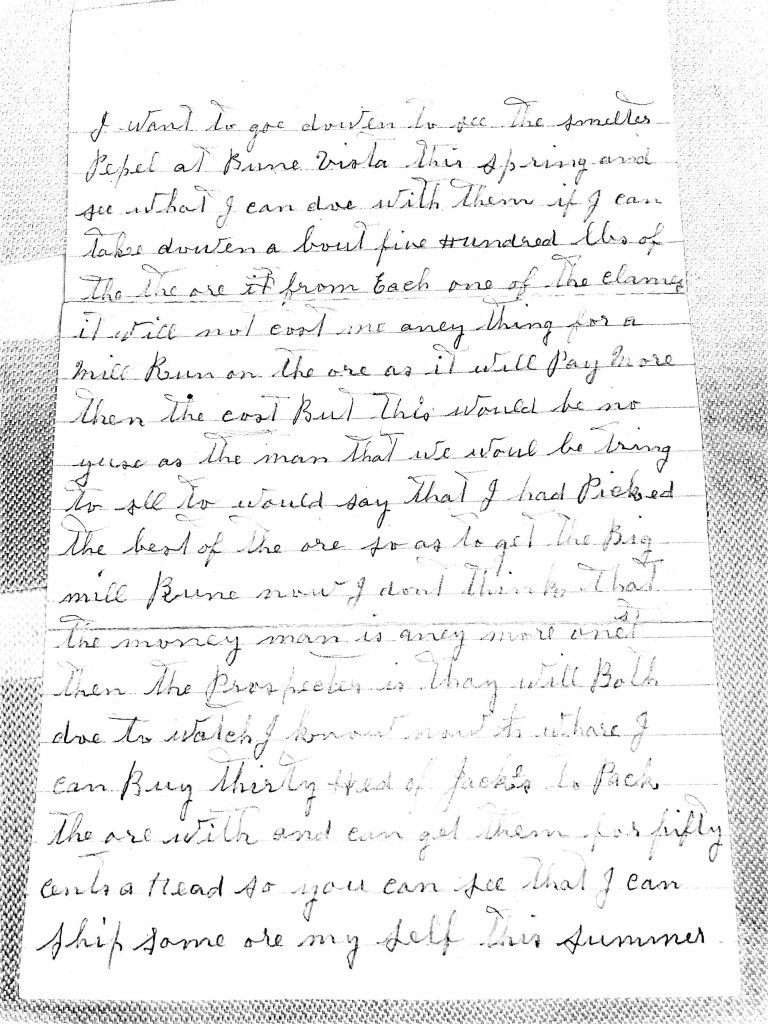 I want to goe dowen to see the smelter
Pepel at Bune Vista this spring and
see what I can doe with them if I can
take dowen a bout five Hundred lbs of
the the ore it from Each one of the clames
it will not cost me aney thing for a
Mill Run on the ore as it will Pay More
then the cost But this would be no
yuse as the man that we woul be tring
to sell to would say that I had Picked
the best of the ore so as to get the Big
mill Rune now I dont think that
the money man is aney more onest
then the Prospecter is thay will Both
doe to watch I know now whare I
can Buy thirty Hed of Jacks to Pack
the ore with and can get them for fifty
cents a Head so you can see that I can
ship some ore my self this summer